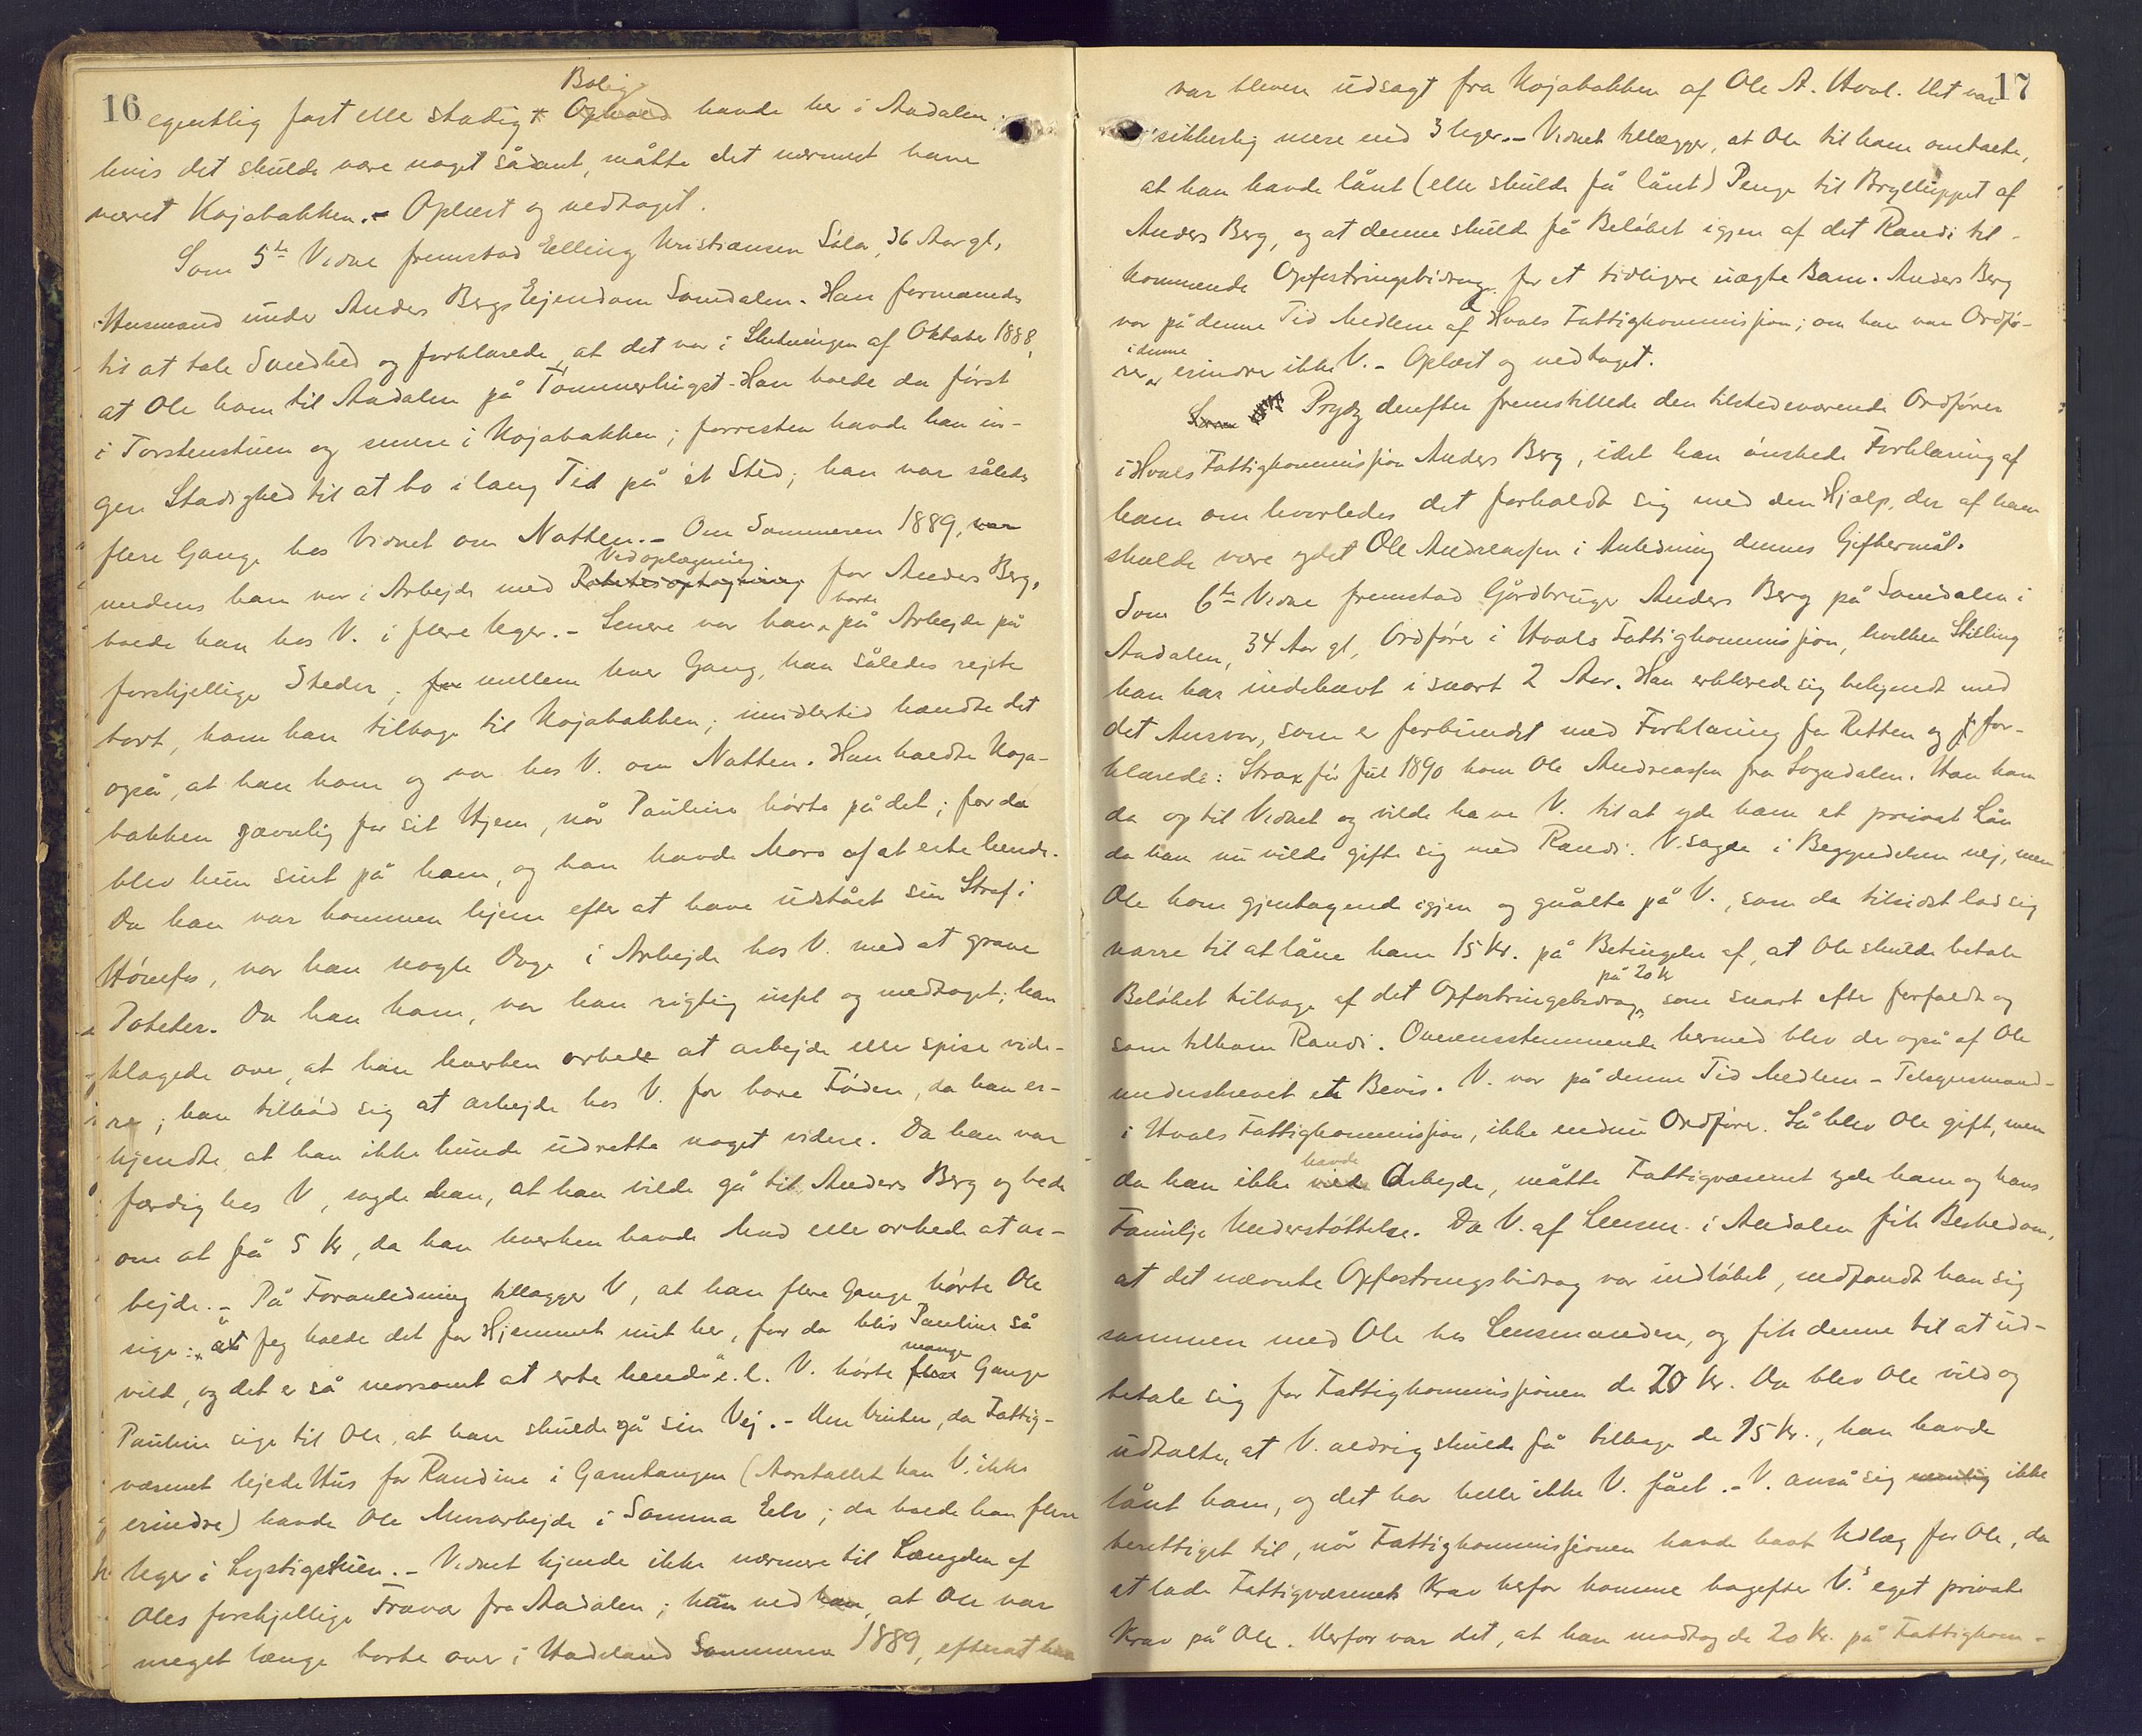 16
Bolig
egentlig fast elle stadigt Ophold havde her i Aadalen;
hvis det skulde være noget sådant, måtte det nærmest have
været Kojabakken. - Oplæst og vedtaget.
Som 5te Vidne fremstod Elling Kristiansen Sôlor, 36 Aar gl,
Husmand under Anders Bergs Ejendom Somdalen. Han formanedes
til at tale Sandhed og forklarede, at det var i Slutningen af Oktober 1888,
at Ole kom til Aadalen på Tômmerhugst. Han boede da fôrst
i Torstenstuen og senere i Kojabakken; forresten havde han in-
gen Stadighed til at bo i lang Tid på ét Sted; han var således
flere Gange hos Vidnet om Natten. - Om Sommeren 1889, var
Vedoplægning
medens han var i Arbejde med Potetesoptagning for Anders Berg,
boede han hos V. i flere Uger. - Senere var han borte på Arbejde på
forskjellige Steder; for mellem hver Gang, han således rejste
bort, kom han tilbage til Kojabakken; imidlertid hændte det
også, at han kom og var hos V. om Natten. Han kaldte Koja-
bakken jævnlig for sit Hjem, når Pauline hôrte på det; for da
blev hun sint på ham, og han havde Moro af at erte hende.
Da han var kommen hjem efter at have udstået sin Straf i
Hônefos, var han nogle Dage i Arbejde hos V. med at grave
Poteter. Da han kom, var han rigtig ussel og medtaget; han
klagede over, at han hverken orkede at arbejde elle spise vide-
re; han tilbôd sig at arbejde hos V. for bare Fôden, da han er-
kjendte, at han ikke kunde udrette noget videre. Da han var
færdig hos V, sagde han, at han vilde gå til Anders Berg og bede
om at få 5 Kr, da han hverken havde Mad elle orkede at ar-
bejde. - På Foranledning tillægger V, at han flere Gange hôrte Ole
sige: "at Jeg holde det for Hjemmet mit her, for da bliv Pauline så
vild, og det er så morsomt at erte hende" e. l. V. hôrte flere mange Gange
Pauline sige til Ole, at han skulde gå sin Vej. - Den Vinter, da Fattig-
væsenet lejede Hus for Randine i Garntangen (Aarstallet kan V. ikke
erindre) havde Ole Murarbejde i Somma Elv; da boede han flere
Uger i Lystigstuen. - Vidnet kjende ikke nærmere til Længden af
Oles forskjellige Fravær fra Aadalen; hun ved han, at Ole var
meget længe borte over i Hadeland Sommeren 1889, efterat han
17
var bleven udsagt fra Kojabakken af Ole A. Hval. Det var
sikkerlig mere end 3 Uger. - Vidnet tillægger, at Ole til ham omtalte,
at han havde lånt (elle skulde få lånt) Penge til Bryllupet af
Anders Berg, og at denne skulde få Belôbet igjen af det Randi til-
kommende Opfostringsbidrag for et tidligere uægte Barn. Anders Berg
var på denne Tid Medlem af Hvals Fattigkommission; om han var Ordfô-
rer i denne erindrer ikke V. - Oplæst og vedtaget.
Som Prydz derefter fremstillede den tilstedeværende Ordfôrer
i Hvals Fattigkommission Anders Berg, idet han ônskede Forklaring af
ham om hvorledes det forholdt sig med den Hjælp, der af ham
skulde være ydet Ole Andreassen i Anledning dennes Giftermål.
Som 6te Vidne fremstod Gårdbruger Anders Berg på Somdalen i
Aadalen, 34 Aar gl, Ordfôrer i Hvals Fattigkommission, hvilken Stilling
han har indehavt i snart 2 Aar. Han erklærede sig bekjendt med
det Ansvar, som er forbundet med Forklaring for Retten og for-
klarede: Strax fôr Jul 1890 kom Ole Andreassen fra Sogndalen. Han kom
da op til Vidnet og vilde have V. til at yde ham et privat Lån
da han nu vilde gifte sig med Randi. V. sagde i Begyndelsen nej, men
Ole kom gjentagende igjen og gnålte på V., som da tilsidst lod sig
narre til at låne ham 15 Kr. på Betingelse af, at Ole skulde betale
Belôbet tilbage af det Opfostringsbidrag på 20 Kr, som snart efter forfaldt og
som tilkom Randi. Overensstemmende hermed blev der også af Ole
underskrevet et Bevis. V. var på denne Tid Medlem - Tilsynsmand -
i Hvals Fattigkommission, ikke endnu Ordfôrer. Så blev Ole gift, men
da han ikke havde Arbejde, måtte Fattigvæsenet yde ham og hans
Familje Understôttelse. Da V. af Lensm. i Aadalen fik Besked om,
at det nævnte Opfostringsbidrag var indlôbet, indfandt han sig
sammen med Ole hos Lensmanden, og fik denne til at ud-
betale sig for Fattigkommissionen de 20 Kr. Da blev Ole vild og
udtalte, at V. aldrig skulde få tilbage de 15 Kr., han havde
lånt ham, og det har heller ikke V. fået. - V. anså sig nemlig ikke
berettiget til, når Fattigkommissionen havde havt Udlæg for Ole, da
at lade Fattigvæsenets Krav herfor komme bagefter V.'s eget private
Krav på Ole. Derfor var det, at han modtog de 20 Kr. på Fattigkom-